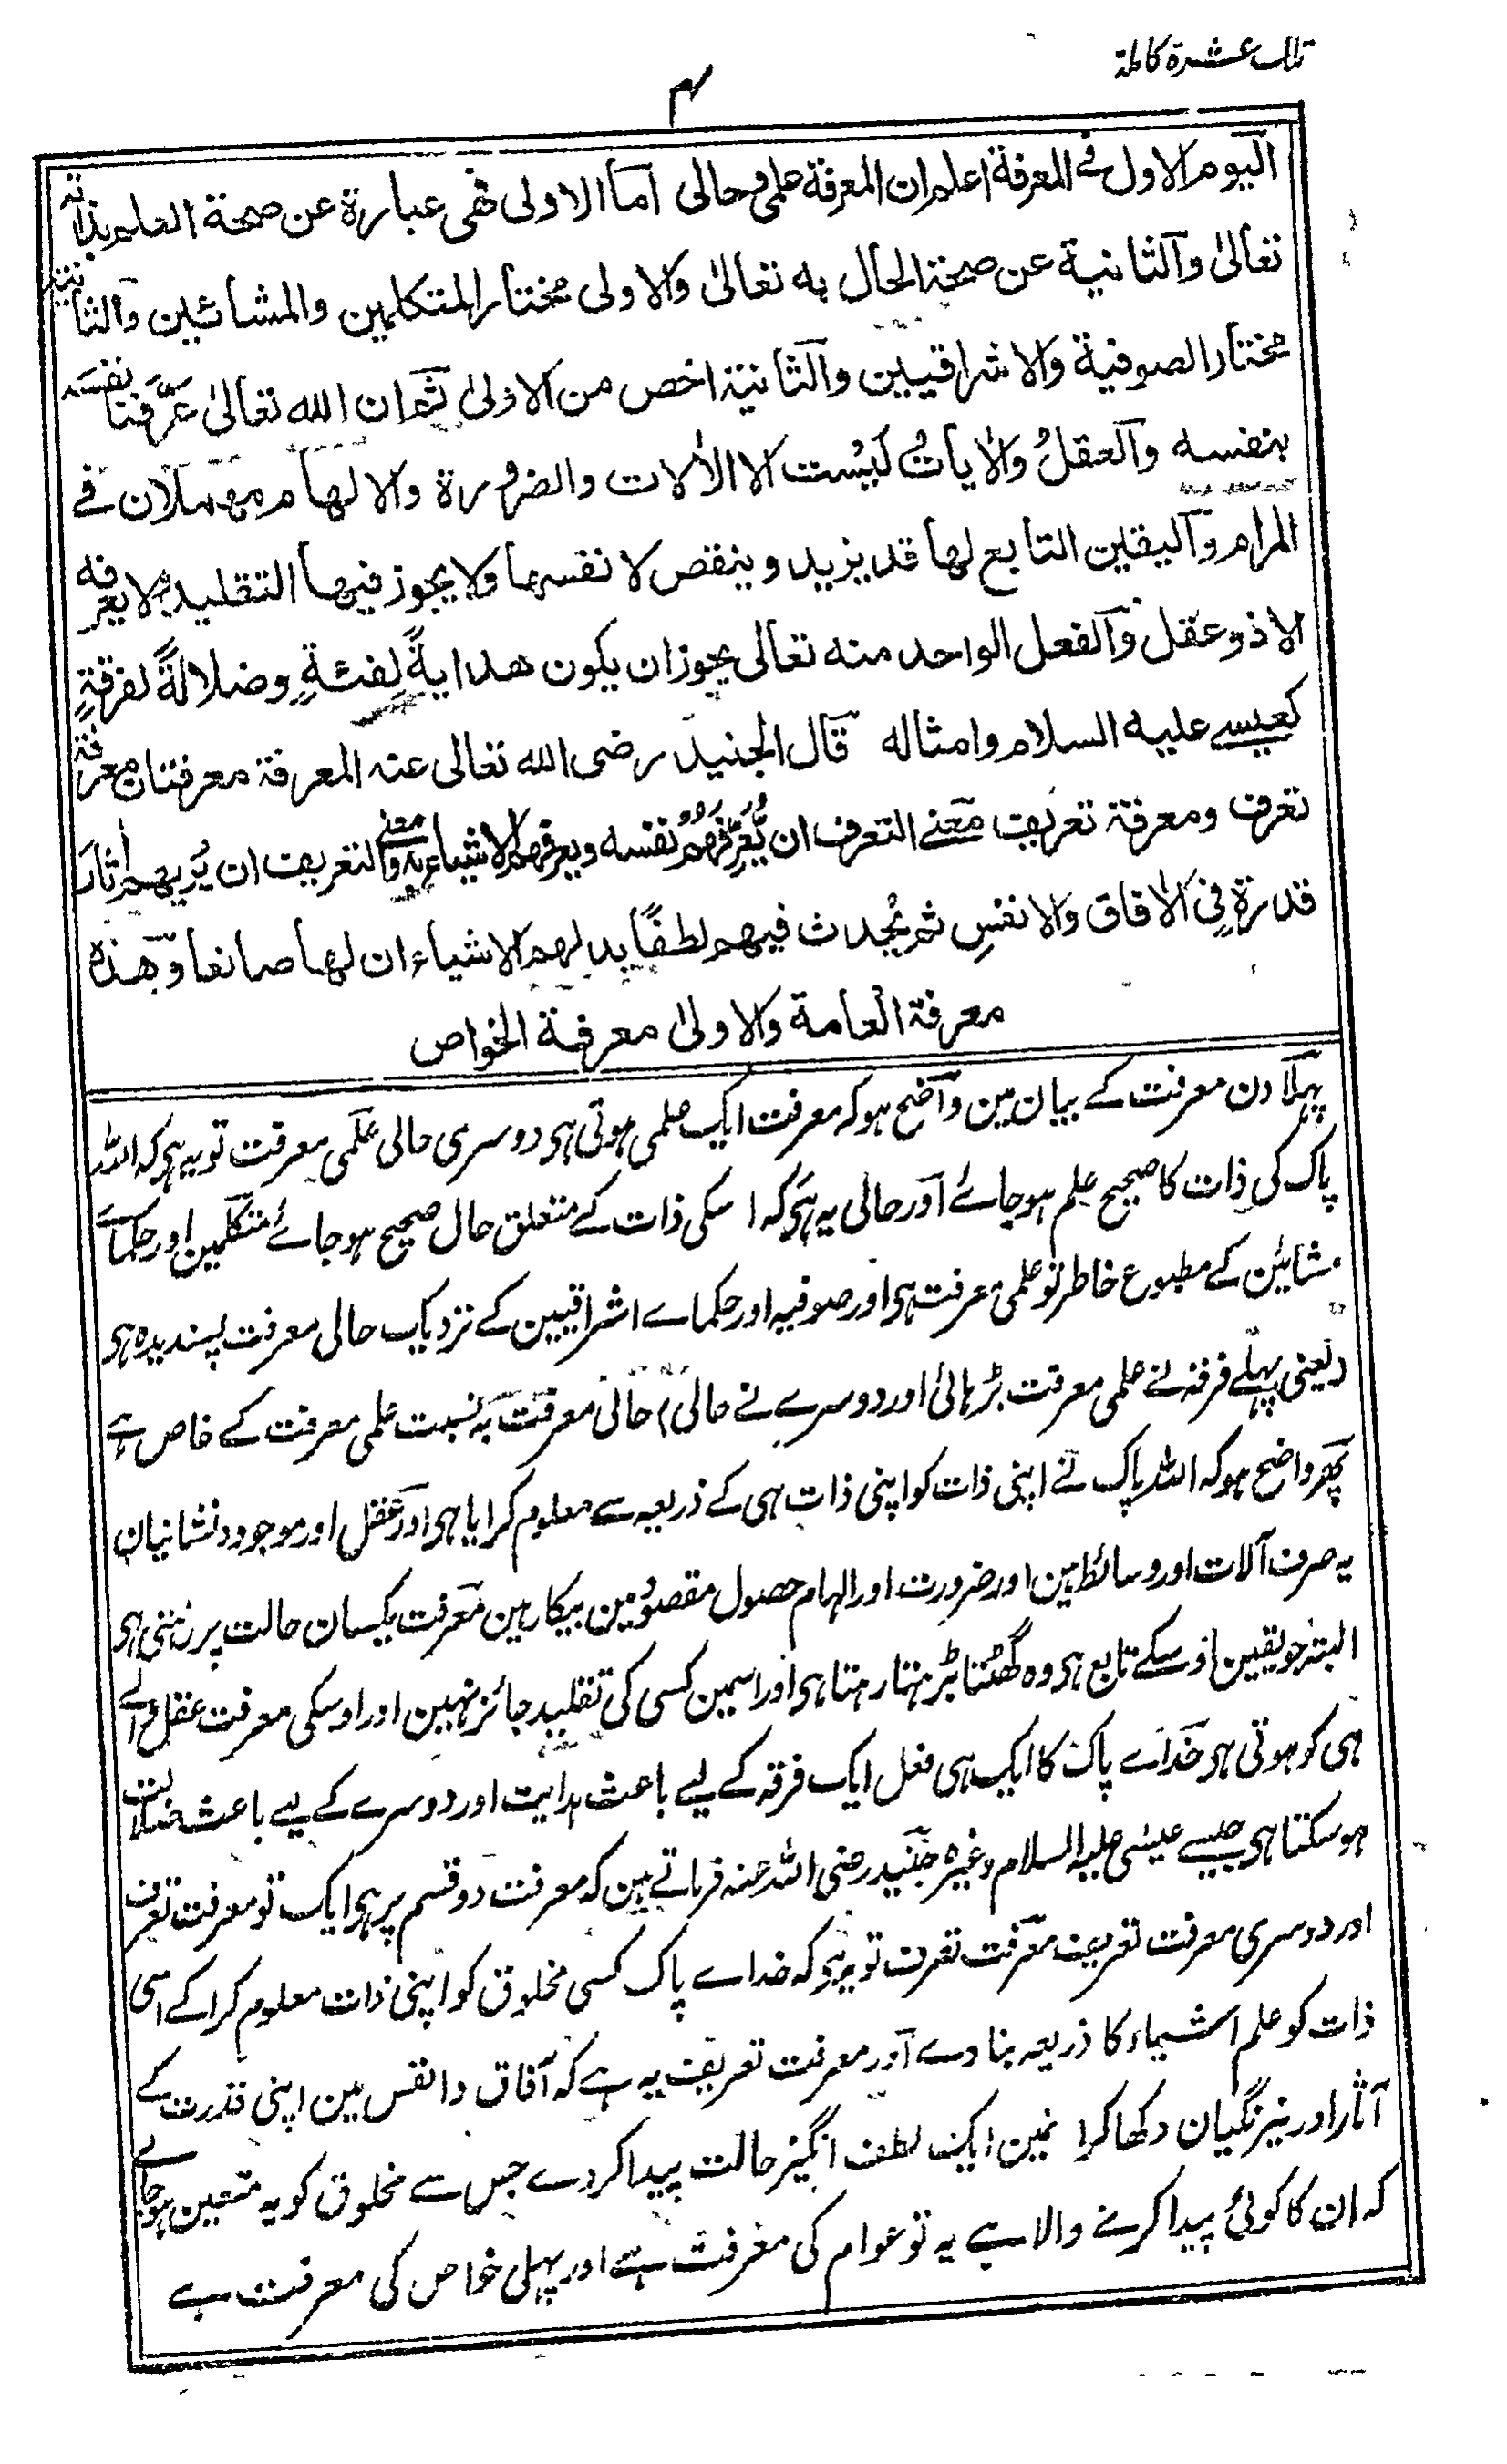 تلك عشرة كاملة
۴
اليوم الاول فے المعرفة اعلم ان المعرفة علمی وحالی اما الاولى فهی عبارة عن صحة العلم بذاته
تعالیٰ وآلثانية عن صحة الحال به تعالیٰ والاولى مختار المتكلمين والمشائين وآلثانية
مختار الصوفية والاشراقيين وآلثانية اخص من الاولیٰ ثم ان الله تعالیٰ عَرَّفنا نفسَه
بنفسه وآلعقلُ والاٰياتُ لَيْسَت الا الاٰلات والضرورة والالهام مهملان فے
المرام وآليقين التابع لها قد يزيد وينقص لا نفسها ولا يجوز فيها التقليد ولا يعرفه
الا ذو عقل وآلفعل الواحد منه تعالى يجوز ان يكون هدايةً لِفئةٍ وضلالةً لفرقةٍ
كعيسے عليه السلام وامثاله قال الجنيد رضى الله تعالى عنه المعرفة معرفتان معرفة
تعرف ومعرفة تعريف معنے التعرف ان يُّعَرِّفَهُمْ نفسه ويعرفهم الاشياء به ومعنے التعريف ان يُريهم اٰثار
قدرةٍ فِي الاٰفاق والانفسِ ثم يُحدث فيهم لطفًا يدلهم الاشياء ان لها صانعا وهذه
معرفة العامة والاولیٰ معرفة الخواص
پہلا دن معرفت کے بیان مین واضح ہو کہ معرفت ایک علمی ہوتی ہی دوسری حالی علمی معرفت تو یہ ہی کہ اللہ
پاک کی ذات کا صحیح علم ہو جاۓ اور حالی یہ ہی کہ اسکی ذات کے متعلق حال صحیح ہو جاۓ متکلمین اور حکماے
مشائین کے مطبوع خاطر تو علمی معرفت ہی اور صوفیہ اور حکماے اشراقیین کے نزدیک حالی معرفت پسندیدہ ہی
(یعنی پہلے فرقہ نے علمی معرفت بڑہائی اور دوسرے نے حالی) حالی معرفت بہ نسبت علمی معرفت کے خاص ہے
پھر واضح ہو کہ اللہ پاک نے اپنی ذات کو اپنی ذات ہی کے ذریعہ سے معلوم کرایا ہی اور عقل اور موجود نشانیان
یہ صرف آلات اور وسائط ہین اور ضرورت اور الہام حصول مقصود مین بیکار ہین معرفت یکسان حالت پر رہتی ہی
البتہ جو یقین اوسکے تابع ہی وہ گھٹتا بڑہتا رہتا ہی اور اسمین کسی کی تقلید جائز نہین اور اوسکی معرفت عقل والے
ہی کو ہوتی ہی خداے پاک کا ایک ہی فعل ایک فرقہ کے لیے باعث ہدایت اور دوسرے کے لیے باعث ضلالت
ہو سکتا ہی جیسے عیسٰی علیہ السلام وغیرہ جنید رضی اللہ عنہ فرماتے ہین کہ معرفت دو قسم پر ہی ایک تو معرفت تعرف
اور دوسری معرفت تعریف معرفت تعرف تو یہ ہی کہ خداے پاک کسی مخلوق کو اپنی ذات معلوم کرا کے اسی
ذات کو علم اشیاء کا ذریعہ بنا دے اور معرفت تعریف یہ ہے کہ آفاق وانفس مین اپنی قدرت کے
آثار اور نیرنگیان دکھا کر انمین ایک لطف انگیز حالت پیدا کر دے جس سے مخلوق کو یہ متعین ہو جاے
کہ ان کا کوئی پیدا کرنے والا ہے یہ تو عوام کی معرفت ہے اور پہلی خواص کی معرفت ہے